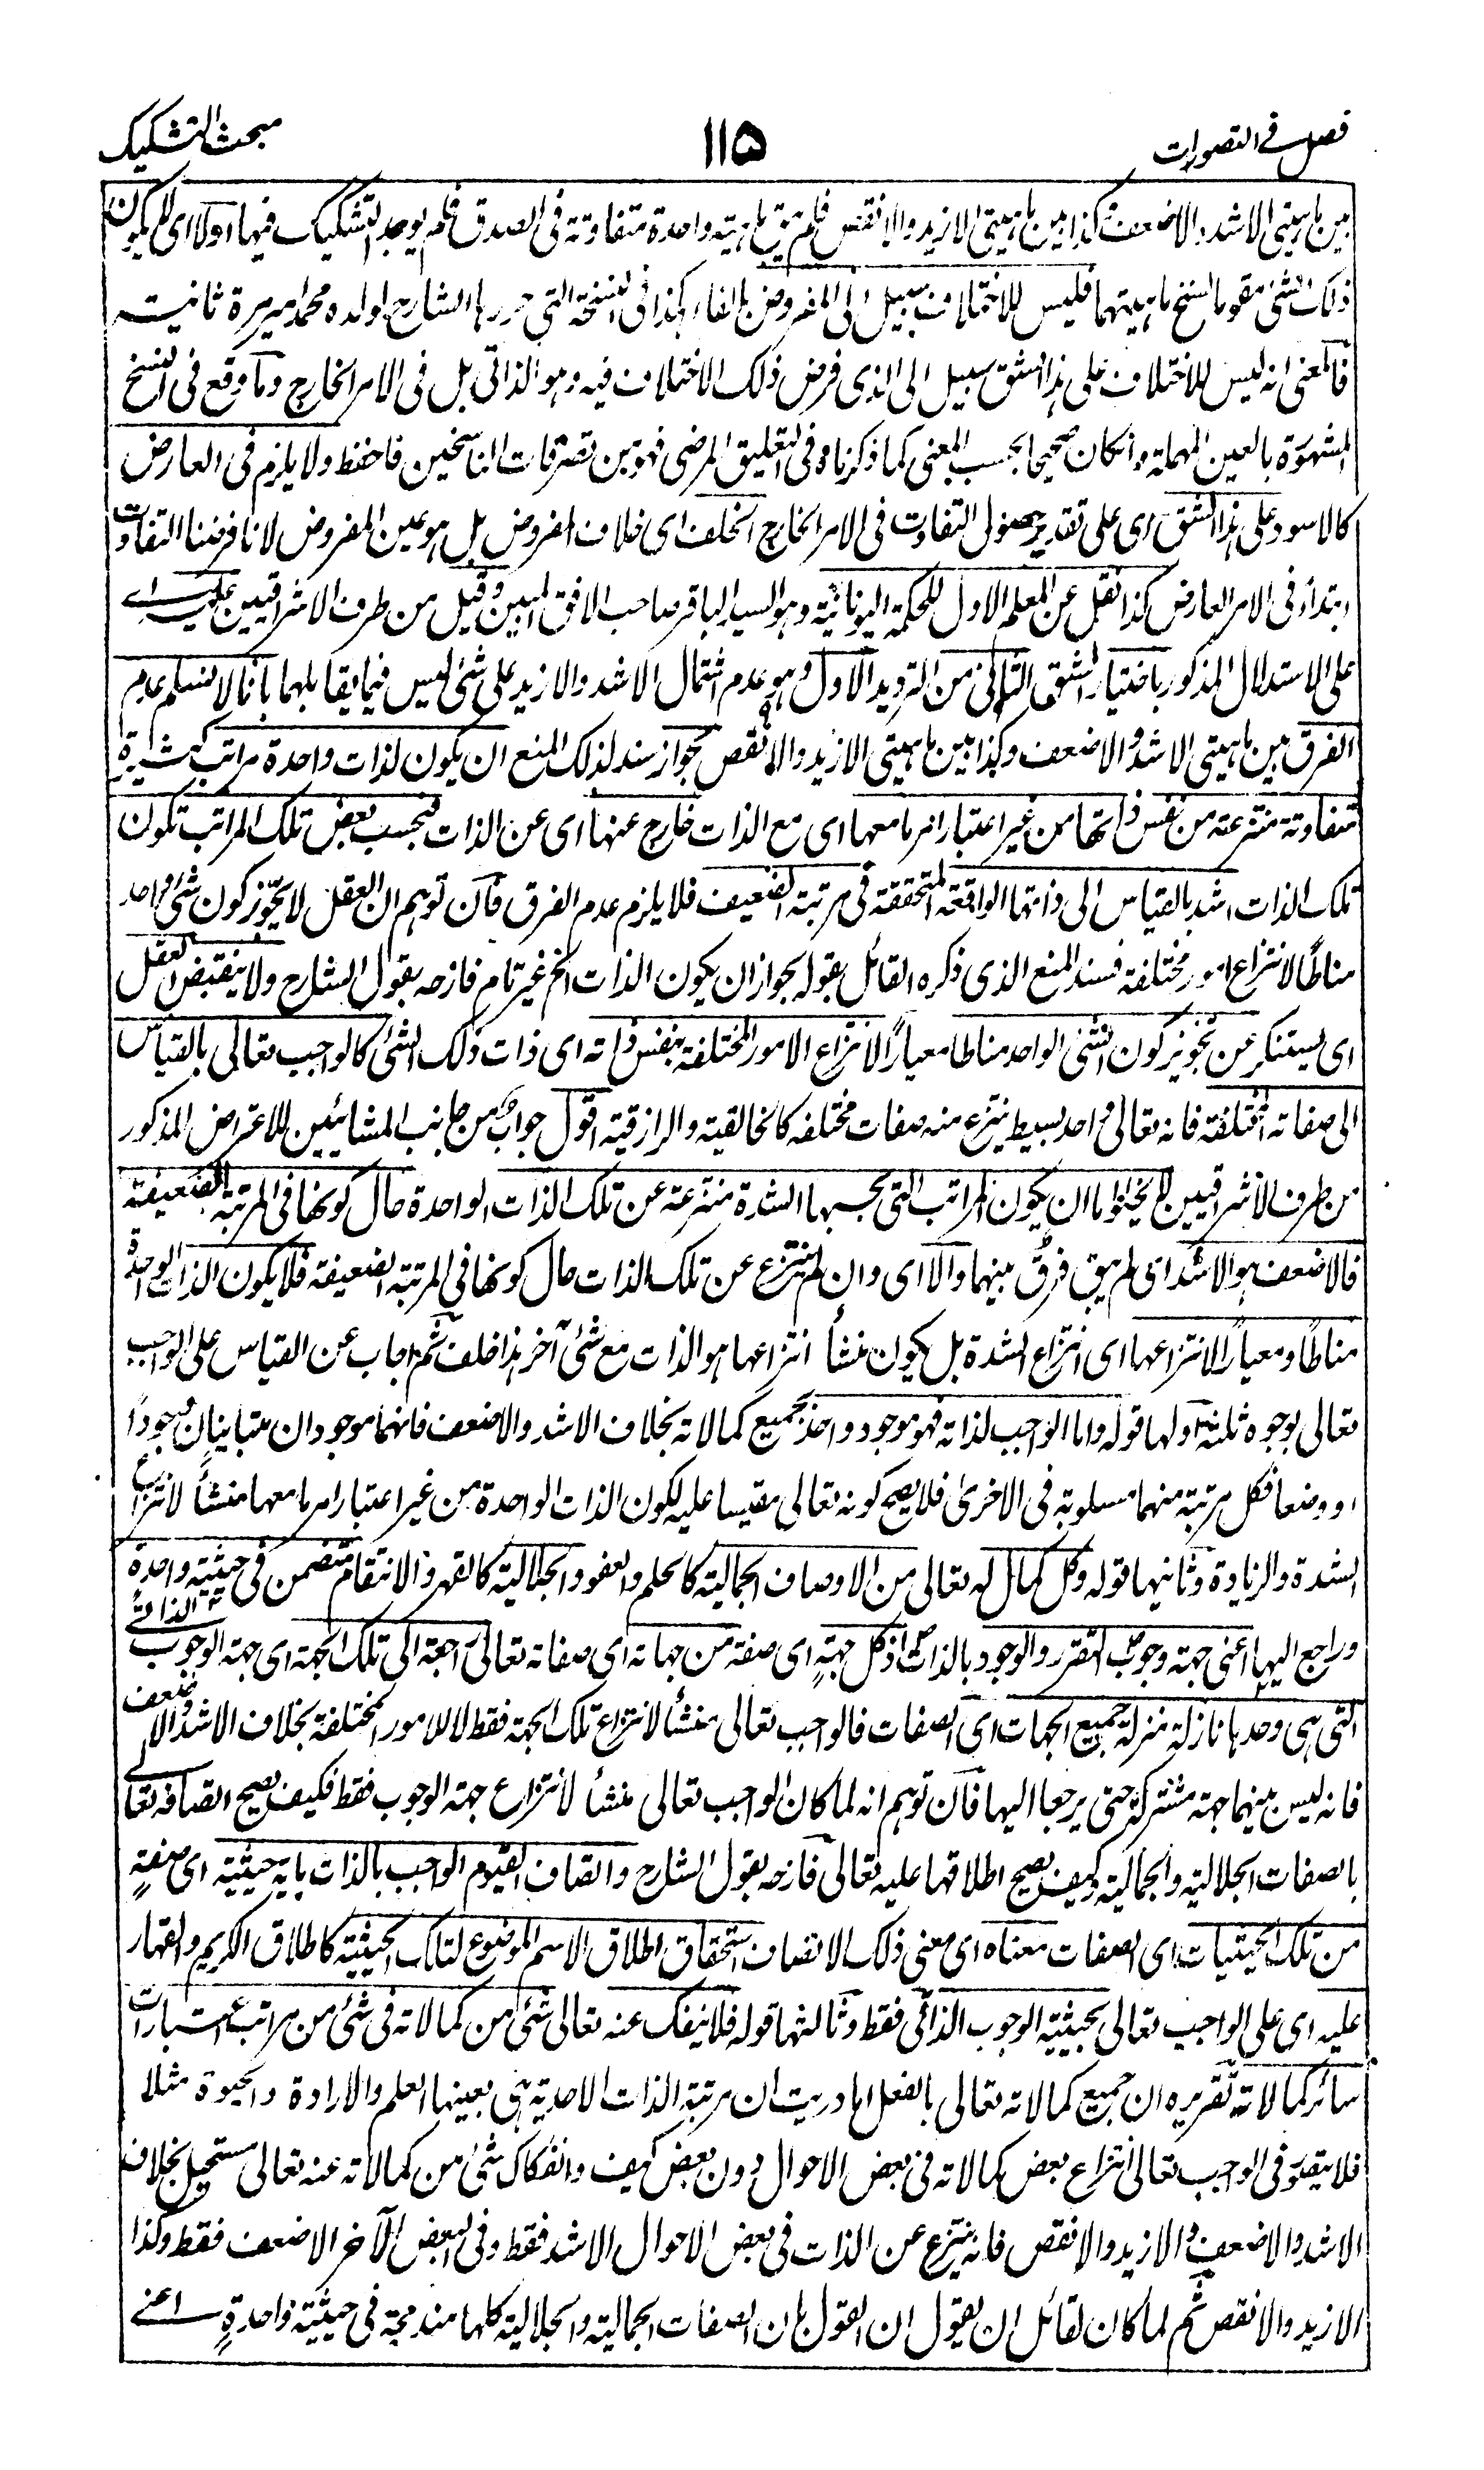 فصل في التصورات
١١٥
مبحث التشكيك
بين ماهيتي الاشد والاضعف كذا بين ماهيتي الازيد والانقص فلم تبق ماهية واحدة متفاوتة في الصدق فلم يوجد التشكيك فيها اولا اى لا يكون
ذلك الشئ مقوما لسنخ ماهيتهما فليس للاختلاف سبيل الى المفروض بالفاء هكذا في النسخة التي حررها الشارح لولده محمد امير مرة ثانية
فالمعنى انه ليس للاختلاف على هذا الشق سبيل الى الذى فرض ذلك الاختلاف فيه وهو الذاتى بل فى الامر الخارج وما وقع فى النسخ
المشهورة بالعين المهملة وان كان صحيحا بحسب المعنى كما ذكرناه فى التعليق المرضى فهو من تصرفات الناسخين فاحفظ ولا يلزم فى العارض
كالاسود على هذا الشق اى على تقدير حصول التفاوت فى الامر الخارج الخلف اى خلاف المفروض بل هو عين المفروض لانا فرضنا التفاوت
ابتداء فى الامر العارض كذا نقل عن المعلم الاول للحكمة اليونانية وهو السيد الباقر صاحب الافق المبين وقيل من طرف الاشراقيين عليه اى
على الاستدلال المذكور باختيار الشق الثانى من الترديد الاول وهو عدم اشتمال الاشد والازيد على شئ ليس فيما يقابلهما بانا لا نسلم عدم
الفرق بين ماهيتى الاشد والاضعف وكذا بين ماهيتى الازيد والانقص بجواز سند لذلك المنع ان يكون لذات واحدة مراتب كثيرة
متفاوتة منتزعة من نفس ذاتها من غير اعتبار امر ما معها اى مع الذات خارج عنها اى عن الذات فبحسب بعض تلك المراتب تكون
تلك الذات اشد بالقياس الى ذاتها الواقعة المتحققة فى مرتبة الضعيف فلا يلزم عدم الفرق فان توهم ان العقل لا يجوّز كون شئ واحد
مناطًا لانتزاع امور مختلفة فسند المنع الذى ذكره القائل بقوله بجواز ان يكون الذات الخ غير تام فازحه بقول الشارح ولا ينقبض العقل
اى يستنكر عن تجويز كون الشئ الواحد مناطا معيارًا لانتزاع الامور المختلفة بنفس ذاته اى ذات ذلك الشئ كالواجب تعالى بالقياس
الى صفاته المختلفة فانه تعالى واحد بسيط ينتزع منه صفات مختلفه كالخالقية والرازقية اقول جواب من جانب المشائيين للاعتراض المذكور
من طرف الاشراقيين لا يخلو اما ان يكون المراتب التى بحسبها الشدة منتزعة عن تلك الذات الواحدة حال كونها فى المرتبة الضعيفة
فالاضعف هو الاشد اى لم يبق فرقٌ بينهما والا اى وان لم ينتزع عن تلك الذات حال كونها فى المرتبة الضعيفة فلا يكون الذات الواحدة
مناطًا ومعيارًا لانتزاعها اى انتزاع الشدة بل يكون منشأ انتزاعها هو الذات مع شئ آخر هذا خلف ثم اجاب عن القياس على الواجب
تعالى بوجوه ثلثة اولها قوله واما الواجب لذاته فهو موجود واحد بجميع كمالاته بخلاف الاشد والاضعف فانهما موجودان متباينان وجودًا
او وضعا فكل مرتبة منهما مسلوبة فى الاخرى فلا يصح كونه تعالى مقيسا عليه لكون الذات الواحدة من غير اعتبار امر ما معها منشأ لانتزاع
الشدة والزيادة وثانيها قوله وكل كمال له تعالى من الاوصاف الجمالية كالحلم والعفو والجلالية كالقهر والانتقام متضمن فى حيثية واحدة
وراجع اليها اعنى جهة وجوب التقرر والوجود بالذات اذ كل جهةٍ اى صفة من جهاته اى صفاته تعالى راجعة الى تلك الجهة اى جهة الوجوب الذاتى
التى هى وحدها نازلة منزلة جميع الجهات اى الصفات فالواجب تعالى منشأ لانتزاع تلك الجهة فقط لا للامور المختلفة بخلاف الاشد والاضعف
فانه ليس بينهما جهة مشتركة حتى يرجعا اليها فان توهم انه لما كان الواجب تعالى منشأ لانتزاع جهة الوجوب فقط فكيف يصح اتصافه تعالى
بالصفات الجلالية والجمالية وكيف يصح اطلاقها عليه تعالى فازحه بقول الشارح واتصاف القيوم الواجب بالذات باية حيثية اى صفةٍ
من تلك الحيثيات اى الصفات معناه اى معنى ذلك الاتصاف استحقاق اطلاق الاسم الموضوع لتلك الحيثية كاطلاق الكريم والقهار
عليه اى على الواجب تعالى بحيثية الوجوب الذاتى فقط وثالثها قوله فلا ينفك عنه تعالى شئ من كمالاته فى شئ من مراتب اعتبارات
سائر كمالاته تقريره ان جميع كمالاته تعالى بالفعل اما دريت ان مرتبة الذات الاحدية هى بعينها العلم والارادة والحيوة مثلا
فلا يتصور فى الواجب تعالى انتزاع بعض كمالاته فى بعض الاحوال دون بعض كيف وانفكاك شئ من كمالاته عنه تعالى مستحيل بخلاف
الاشد والاضعف والازيد والانقص فانه ينتزع عن الذات فى بعض الاحوال الاشد فقط وفى البعض الآخر الاضعف فقط وكذا
الازيد والانقص ثم لما كان لقائل ان يقول ان القول بان الصفات الجمالية والجلالية كلها مندمجة فى حيثية واحدةٍ اعنى